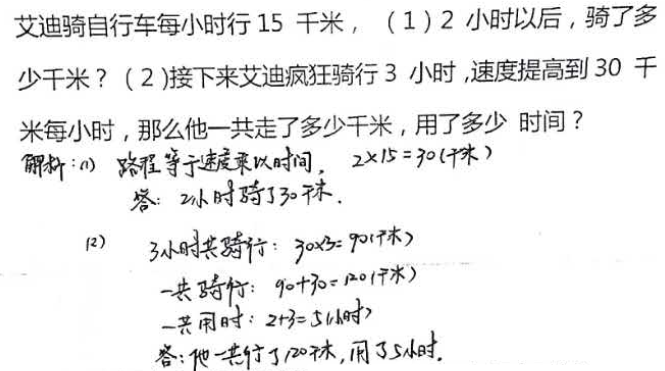 艾迪骑自行车每小时行 15 千米， （1）2 小时以后，骑了多
少千米？（2)接下来艾迪疯狂骑行 3 小时,速度提高到 30 千
米每小时，那么他一共走了多少千米，用了多少 时间？
解析:(1) 路程等于速度乘以时间， 2×15=30(千米)
答: 2小时骑了30千米.
(2) 3小时共骑行: 30×3=90(千米)
一共骑行: 90+30=120(千米)
一共用时: 2+3=5(小时)
答:他一共行了120千米,用了5小时.